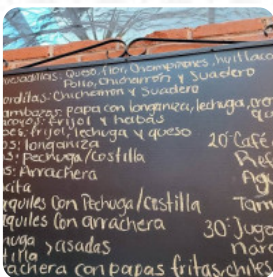 Quesadillas: Queso, flor, Champiñones, huitlaco
Pollo, Chicharron y Suadero
orditas: Chicharron y Suadero
ambazos: papa con longaniza, lechuga,
frijol y habas
es: frijol, lechuga y queso
s: longaniza
20·Café
s: Pechuga/costilla
s: Arrachera
cita
quiles Con Pechuga/Costilla
quiles Con arrachera
30·Jugo
huga
nar
tilla > asadas
achera con papas fritas, chiles